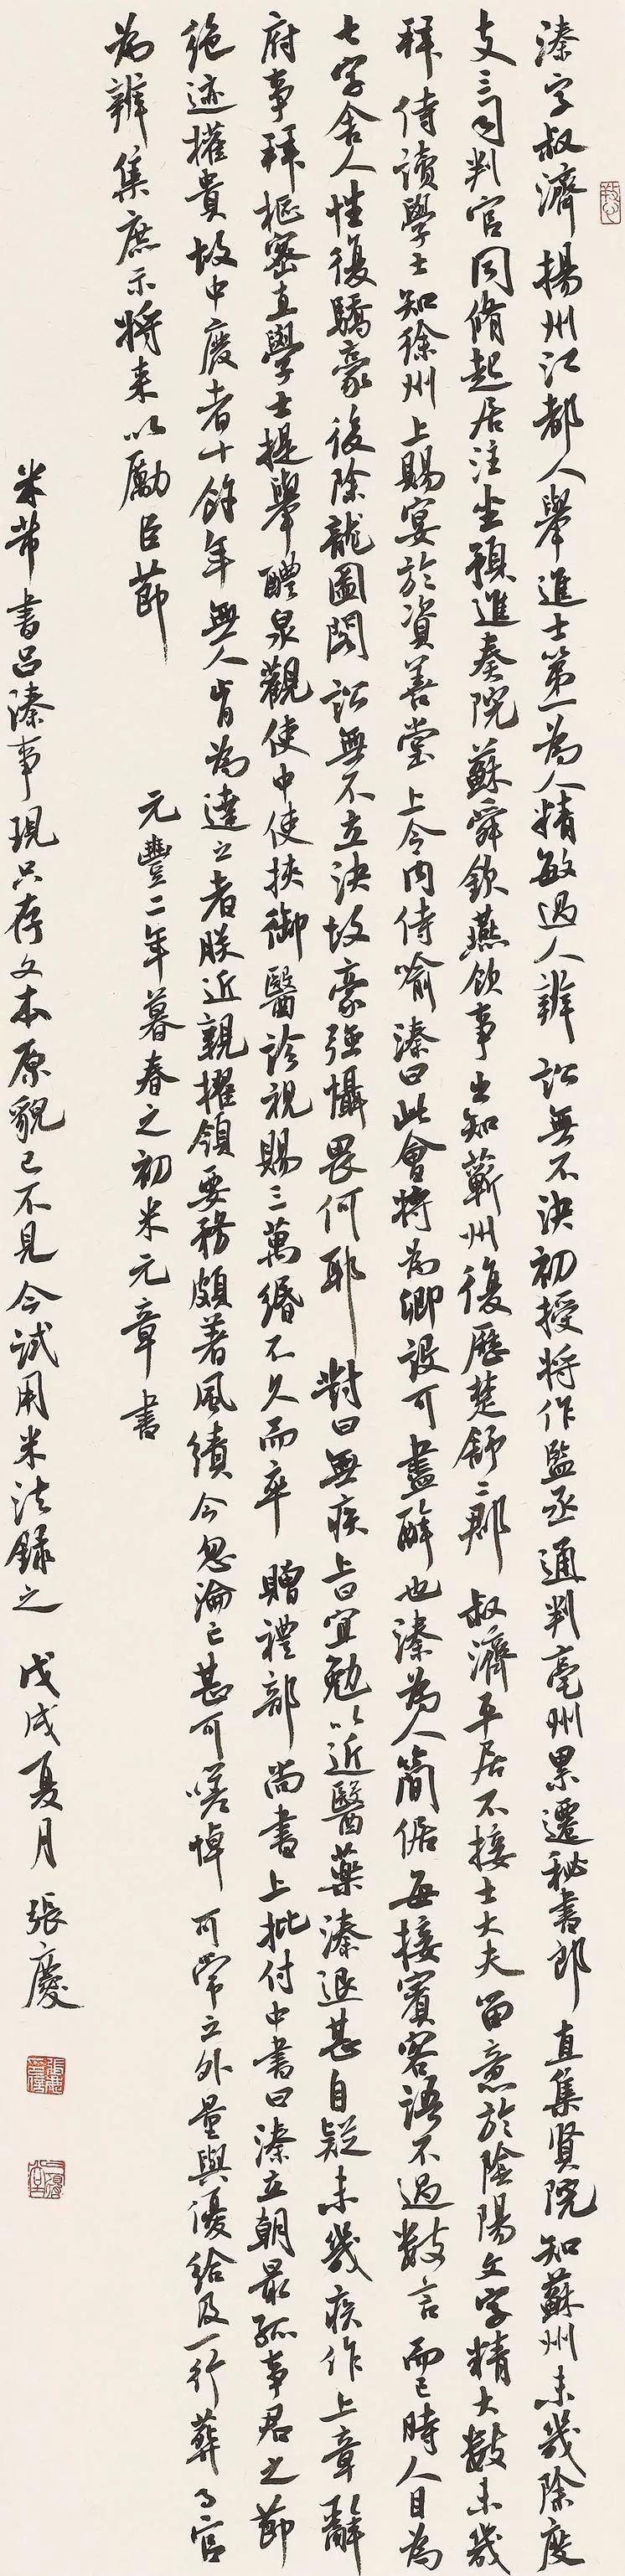 溱字叔濟揚州江都人舉進士第一為人精敏過人辨訟無不決初授將作監丞通判亳州累遷秘書郎直集賢院知蘇州未幾除度
支三司判官同脩起居注坐預進奏院蘇舜欽燕飲事出知蘄州復歷楚舒二郡叔濟平居不接士大夫留意於陰陽文字精大數未幾
拜侍讀學士知徐州上賜宴於資善堂上令內侍喻溱曰此會特為卿設可盡醉也溱為人簡倨每接賓客語不過數言而已時人目為
七字舍人性復驕豪後除龍圖閣訟無不立決故豪強懾畏何耶對曰無疾上曰宜勉以近醫藥溱退甚自疑未幾疾作上章辭
府事拜樞密直學士提舉醴泉觀使中使挾御醫診視賜三萬緡不久而卒贈禮部尚書上批付中書曰溱立朝最孤事君之節
絕迹權貴故中廢者十餘年無人肯為達之者朕近親擢領要務頗著風績今忽淪亡甚可嗟悼可常之外量與優給及一行葬事官
為辨集庶示將来以勵臣節
元豐二年暮春之初米元章書
米芾書呂溱事現只存文本原貌已不見今試用米法錄之戊戌夏月張慶